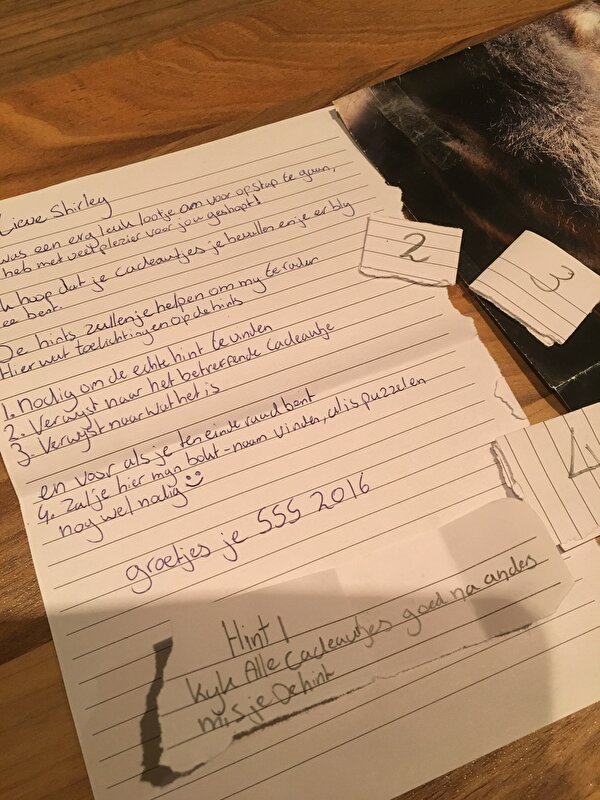 Lieve Shirley
was een erg leuk lootje om voor op stap te gaan,
heb met veel plezier voor jou geshopt!
k hoop dat je cadeautjes je bevallen en je er bly
ee bent.
De hints zullen je helpen om my te raden
Hier wat toelichtingen op de hints
1. nodig om de echte hint te vinden
2. Verwyst naar het betreffende cadeautje
3. Verwyst naar wat het is
en voor als je ten einde raad bent
4. Zal je hier myn naam vinden, al is puzzelen
nog wel nodig
groetjes je SSS 2016
2
3
4
Hint 1
Kyk Alle Cadeautjes goed na anders
mis je De hint